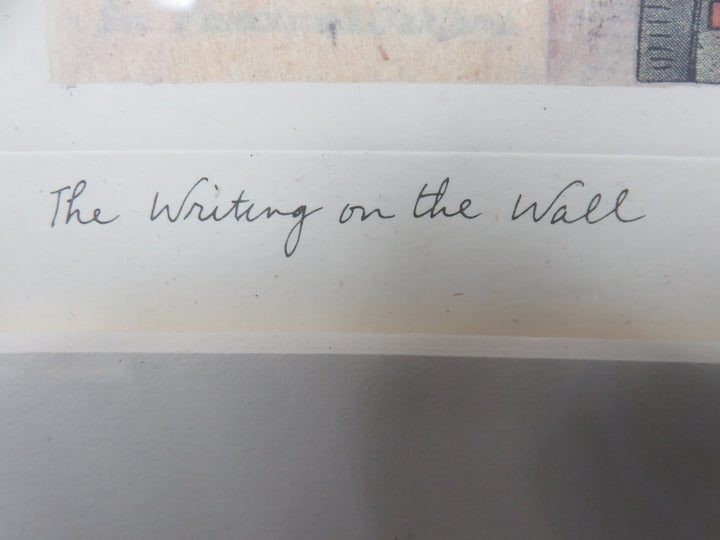 The Writing on the Wall